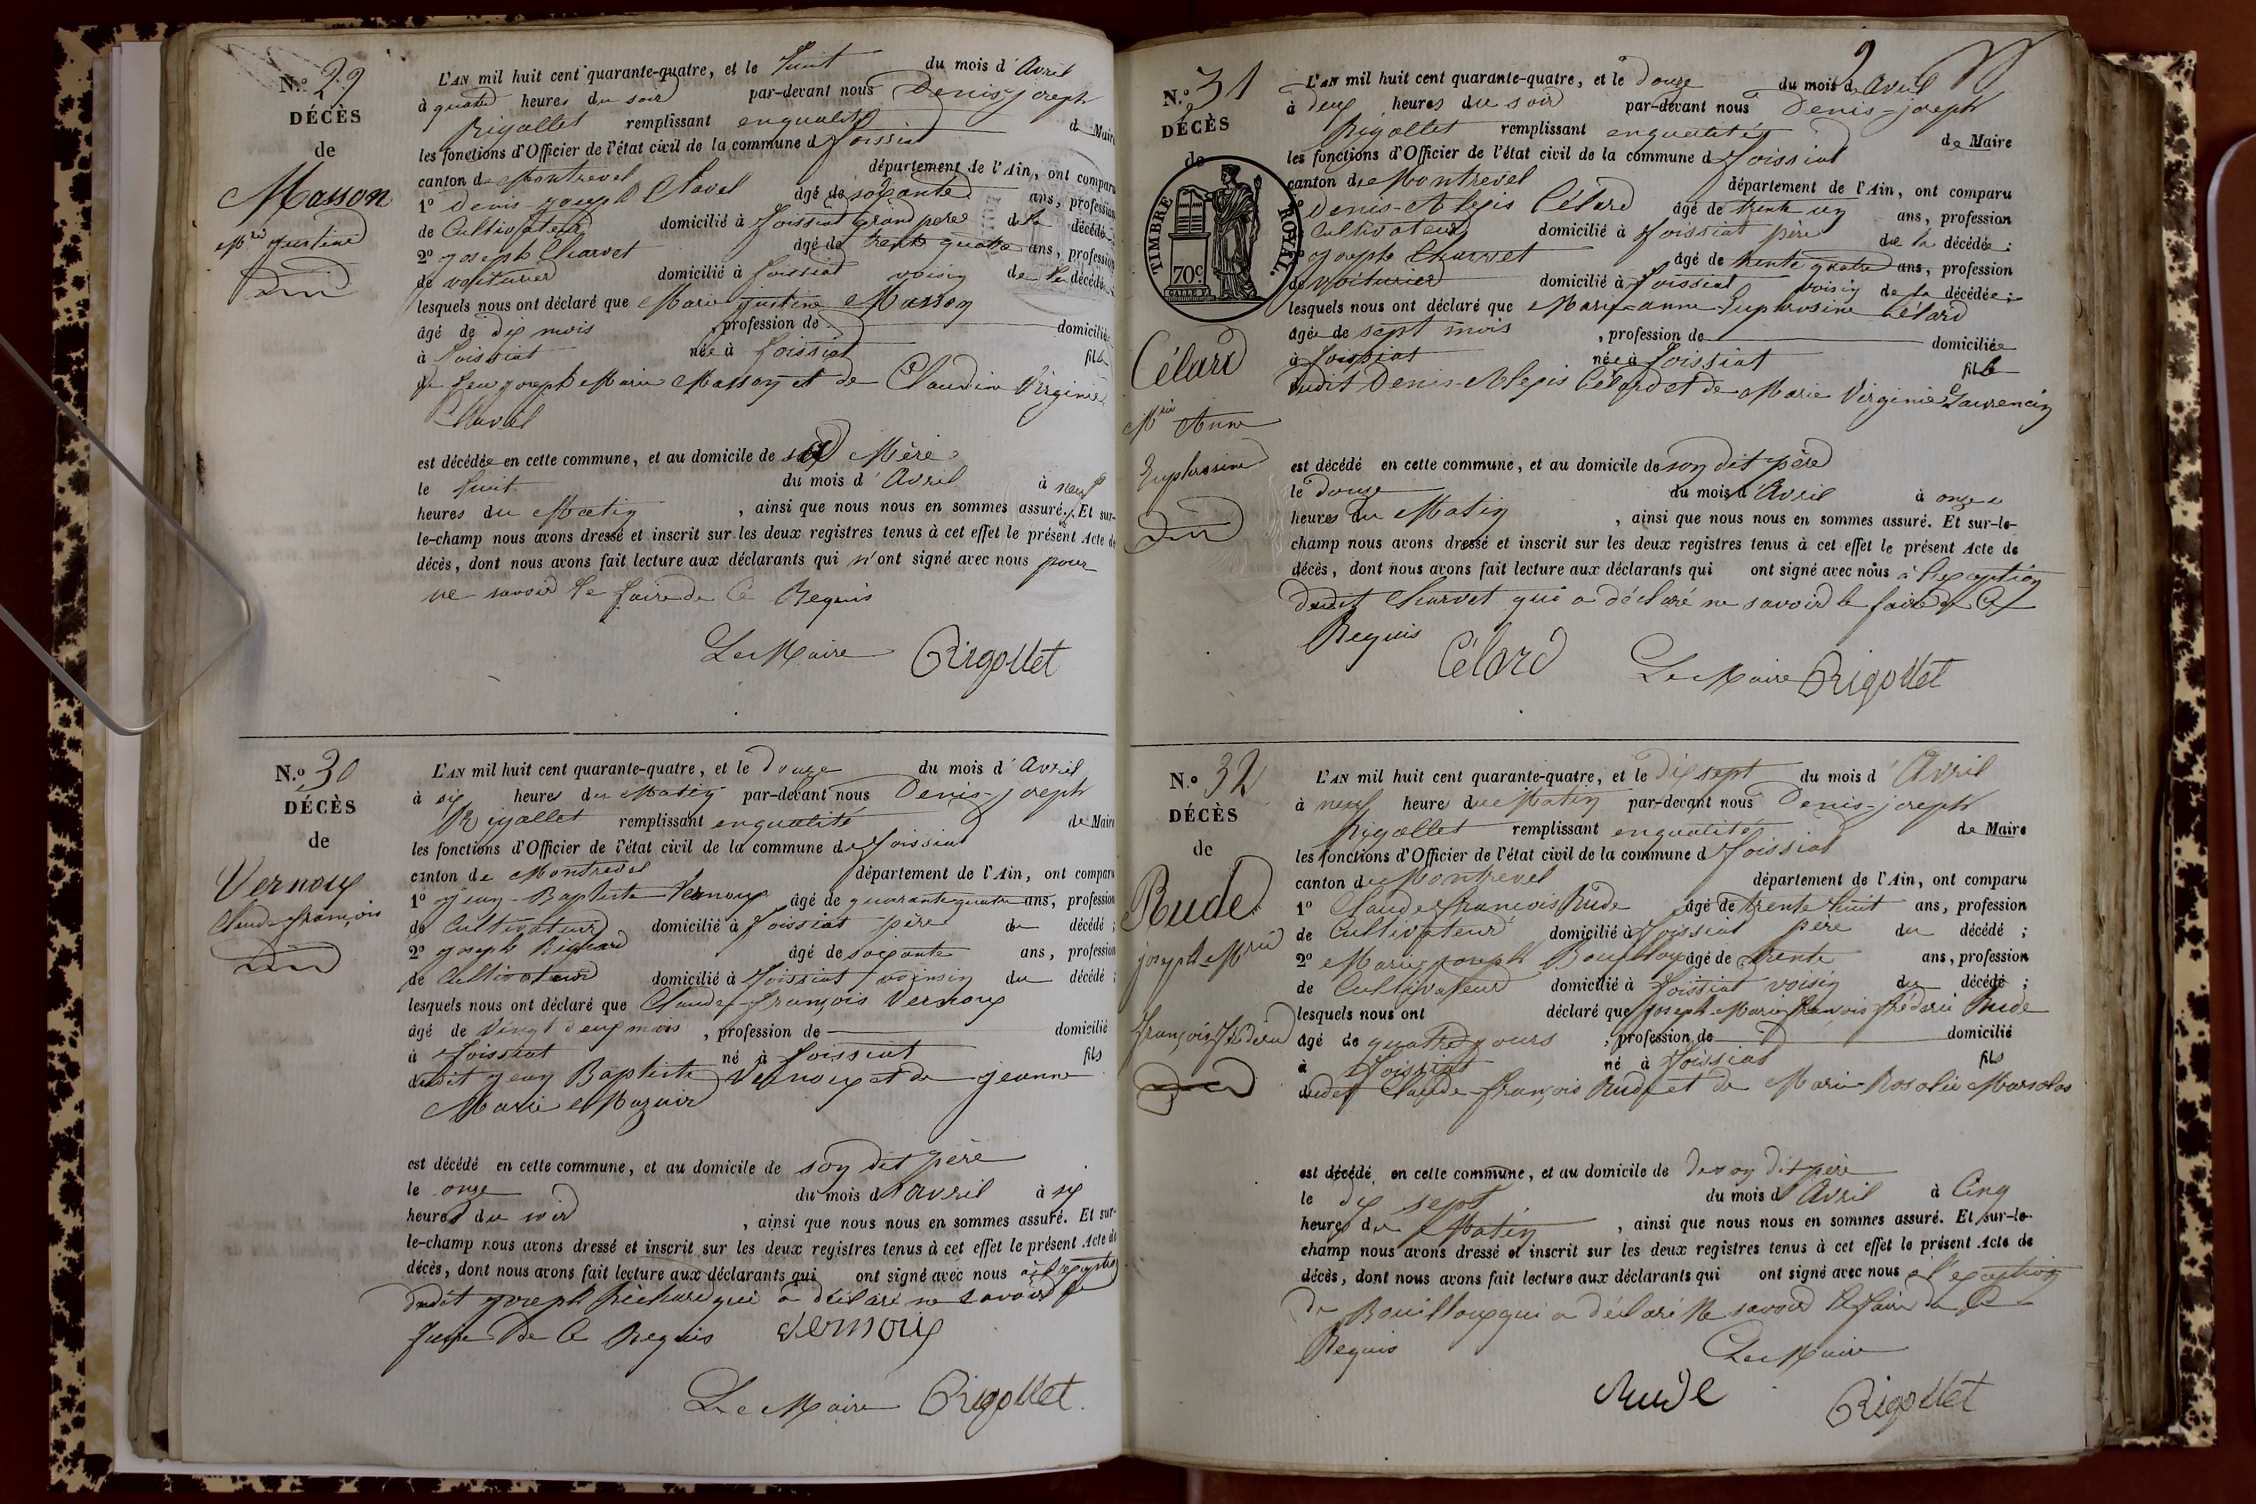 N.° 29
DÉCÈS
de
Masson
Mie justine
L'AN mil huit cent quarante-quatre, et le huit du mois d'Avril
à quatre heures du soir par-devant nous Denis-joseph
Rigollet remplissant en qualité de Maire
les fonctions d'Officier de l'état civil de la commune de foissiat
canton de Montrevel département de l'Ain, ont comparu
1° Denis-joseph Clavel âgé de soixante ans, profession
de Cultivateur domicilié à foissiat grand père de la décédée
2° joseph Charvet âgé de trente quatre ans, profession
de voiturier domicilié à foissiat voisin de la décédée
lesquels nous ont déclaré que Marie justine Masson
âgé de dix mois , profession de domiciliée
à foissiat née à foissiat fille
de feu joseph Marie Masson et de Claudine Virginie
Clavel
est décédée en cette commune, et au domicile de sa Mère
le huit du mois d'Avril à neuf
heures du Matin , ainsi que nous nous en sommes assuré. Et sur-
le-champ nous avons dressé et inscrit sur les deux registres tenus à cet effet le présent Acte de
décès, dont nous avons fait lecture aux déclarants qui n'ont signé avec nous pour
ne savoir le faire de ce Requis
Le Maire Rigollet
N.° 30
DÉCÈS
de
Vernoux
Claude françois
L'AN mil huit cent quarante-quatre, et le douze du mois d'Avril
à six heures du Matin par-devant nous Denis-joseph
Rigollet remplissant en qualité de Maire
les fonctions d'Officier de l'état civil de la commune de foissiat
canton de Montrevel département de l'Ain, ont comparu
1° jean-Baptiste Vernoux âgé de quarante quatre ans, profession
de Cultivateur domicilié à foissiat père du décédé ;
2° joseph Richard âgé de soixante ans, profession
de Cultivateur domicilié à foissiat voinsin du décédé ;
lesquels nous ont déclaré que Claude-françois Vernoux
âgé de vingt deux mois , profession de domicilié
à foissiat né à foissiat fils
dudit jean Baptiste Vernoux et de jeanne
Marie Mazuir
est décédé en cette commune, et au domicile de son dit père
le onze du mois d'avril à six
heures du soir , ainsi que nous nous en sommes assuré. Et sur-
le-champ nous avons dressé et inscrit sur les deux registres tenus à cet effet le présent Acte de
décès, dont nous avons fait lecture aux déclarants qui ont signé avec nous à l'exception
dudit joseph Richard qui a déclaré ne savoir le
faire De Ce Requis Vernoux
Le Maire Rigollet
2
N.° 31
DÉCÈS
de
TIMBRE ROYAL.
70c
Célard
Mrie Anne
Euphrosine
L'AN mil huit cent quarante-quatre, et le douze du mois d'Avril
à deux heures du soir par-devant nous Denis-joseph
Rigollet remplissant en qualité de Maire
les fonctions d'Officier de l'état civil de la commune de foissiat
canton de Montrevel département de l'Ain, ont comparu
Denis-Alexis Célard âgé de trente un ans, profession
Cultivateur domicilié à foissiat père de la décédée ;
joseph Charvet âgé de trente quatre ans, profession
de voiturier domicilié à foissiat voisin de la décédée ;
lesquels nous ont déclaré que Marie-anne-Euphrosine Célard
âgée de sept mois , profession de domiciliée
à foissiat née à foissiat fille
dudit Denis-Alexis Célard et de Marie Virginie Laurencin
est décédé en cette commune, et au domicile de son dit père
le Douze du mois d'Avril à onze
heures du Matin , ainsi que nous nous en sommes assuré. Et sur-le-
champ nous avons dressé et inscrit sur les deux registres tenus à cet effet le présent Acte de
décès, dont nous avons fait lecture aux déclarants qui ont signé avec nous à l'exception
dudit Charvet qui a déclaré ne savoir le faire de Ce
Requis Célard Le Maire Rigollet
N.° 32
DÉCÈS
de
Rude
joseph Mrie
françois fréderic
L'AN mil huit cent quarante-quatre, et le Dix sept du mois d'Avril
à neuf heure du Matin par-devant nous Denis-joseph
Rigollet remplissant en qualité de Maire
les fonctions d'Officier de l'état civil de la commune d foissiat
canton de Montrevel département de l'Ain, ont comparu
1° Claude françois Rude âgé de trente huit ans, profession
de Cultivateur domicilié à foissiat père du décédé ;
2° Marie joseph Bouilloux âgé de trente ans, profession
de Cultivateur domicilié à foissiat voisin du décédé ;
lesquels nous ont déclaré que joseph-Marie françois fréderic Rude
âgé de quatre jours , profession de domicilié
à foissiat né à foissiat fils
dudit Claude-françois Rude et de Marie-Rosalie Marsolas
est décédé en cette commune, et au domicile de de son dit père
le dix sept du mois d'Avril à Cinq
heures du Matin , ainsi que nous nous en sommes assuré. Et sur-le-
champ nous avons dressé et inscrit sur les deux registres tenus à cet effet le présent Acte de
décès, dont nous avons fait lecture aux déclarants qui ont signé avec nous à l'exception
de Bouilloux qui a déclaré Ne savoir le faire de Ce
Requis Le Maire
Rude Rigollet